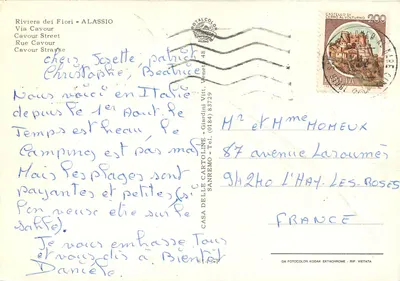 Riviera dei Fiori - ALASSIO
Via Cavour
Cavour Street
Rue Cavour
Cavour Strasse
Chers Josette, patrick
Christophe, Béatrice
Nous voici en Italie
depuis le 1er Aout. le
Temps est beau, le
Camping est pas mal
Mais les plages sont
payantes et petites (si
l'on veut être sur le
sable).
Je vous embrasse Tous
et vous dis à Bientôt
Danièle
CASA DELLE CARTOLINE - Giardini Vitt.
SANREMO - Tel. (0184) 83729
200
Mr et Mme MOMEUX
87 avenue Larroumès
94240 L'HAY-LES-ROSES
FRANCE